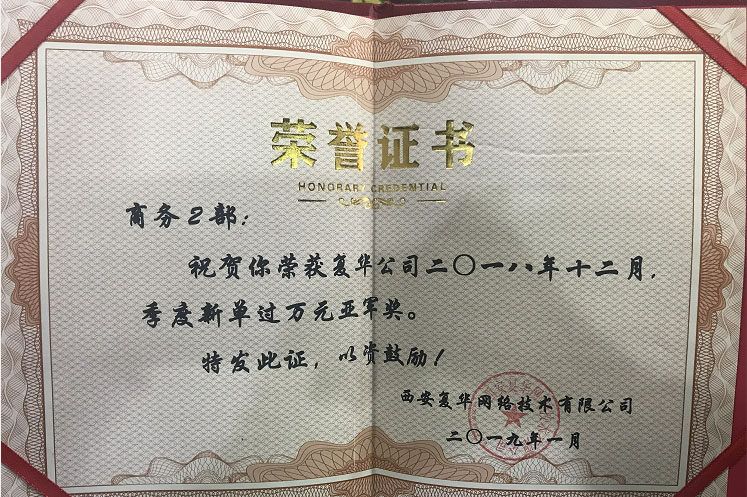 荣誉证书
HONORARY CREDENTIAL
商务2部：
祝贺你荣获复华公司二〇一八年十二月，
季度新单过万元亚军奖。
特发此证，以资鼓励！
西安复华网络技术有限公司
二〇一九年一月